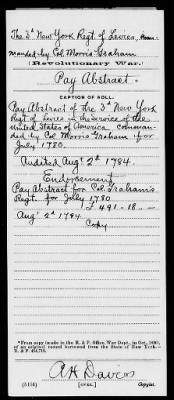 The 3d New York Regt. of Levies, com-
manded by Col. Morris Graham
(Revolutionary War.)
Pay Abstract.
CAPTION OF ROLL.
Pay Abstract of the 3d New York
Regt. of Levies in the service of the
United States of America comman-
ded by Col. Morris Graham for
July 1780.
Audited Augt 2d 1784.
Endorsement
Pay Abstract for Col. Graham's
Regt. for July 1780
£ 491-18-
Augt 2d 1784
Copy
*From copy made in the R. & P. Office, War Dept., in Oct.,
of an original record borrowed from the State of New York.—
R. & P.
A H Davis
Copyist.